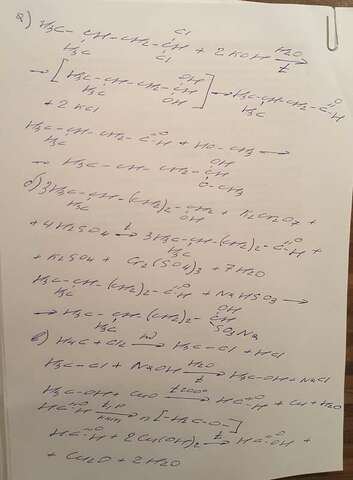 а) H₃C-CH-CH₂-CH + 2 KOH H₂O/t →
H₃C Cl Cl
→ [H₃C-CH-CH₂-CH] → H₃C-CH-CH₂-C=O-H
H₃C OH OH H₃C
+ 2 KCl
H₃C-CH-CH₂-C=O-H + HO-CH₃ →
H₃C OH
→ H₃C-CH-CH₂-CH
H₃C O-CH₃
б) 3H₃C-CH-(CH₂)₂-CH₂ + K₂Cr₂O₇ +
H₃C OH
+ 4H₂SO₄ t → 3H₃C-CH-(CH₂)₂-C=O-H +
H₃C
+ K₂SO₄ + Cr₂(SO₄)₃ + 7H₂O
H₃C-CH-(CH₂)₂-C=O-H + NaHSO₃ →
H₃C OH
→ H₃C-CH-(CH₂)₂-CH
H₃C SO₃Na
в) H₄C + Cl₂ hν → H₃C-Cl + HCl
H₃C-Cl + NaOH H₂O/t → H₃C-OH + NaCl
H₃C-OH + CuO t200° → HC=O-H + Cu + H₂O
HC=O-H t,p/кат → n[-H₂C-O-]
HC=O-H + 2Cu(OH)₂ t → HC=O-OH +
+ Cu₂O + 2H₂O